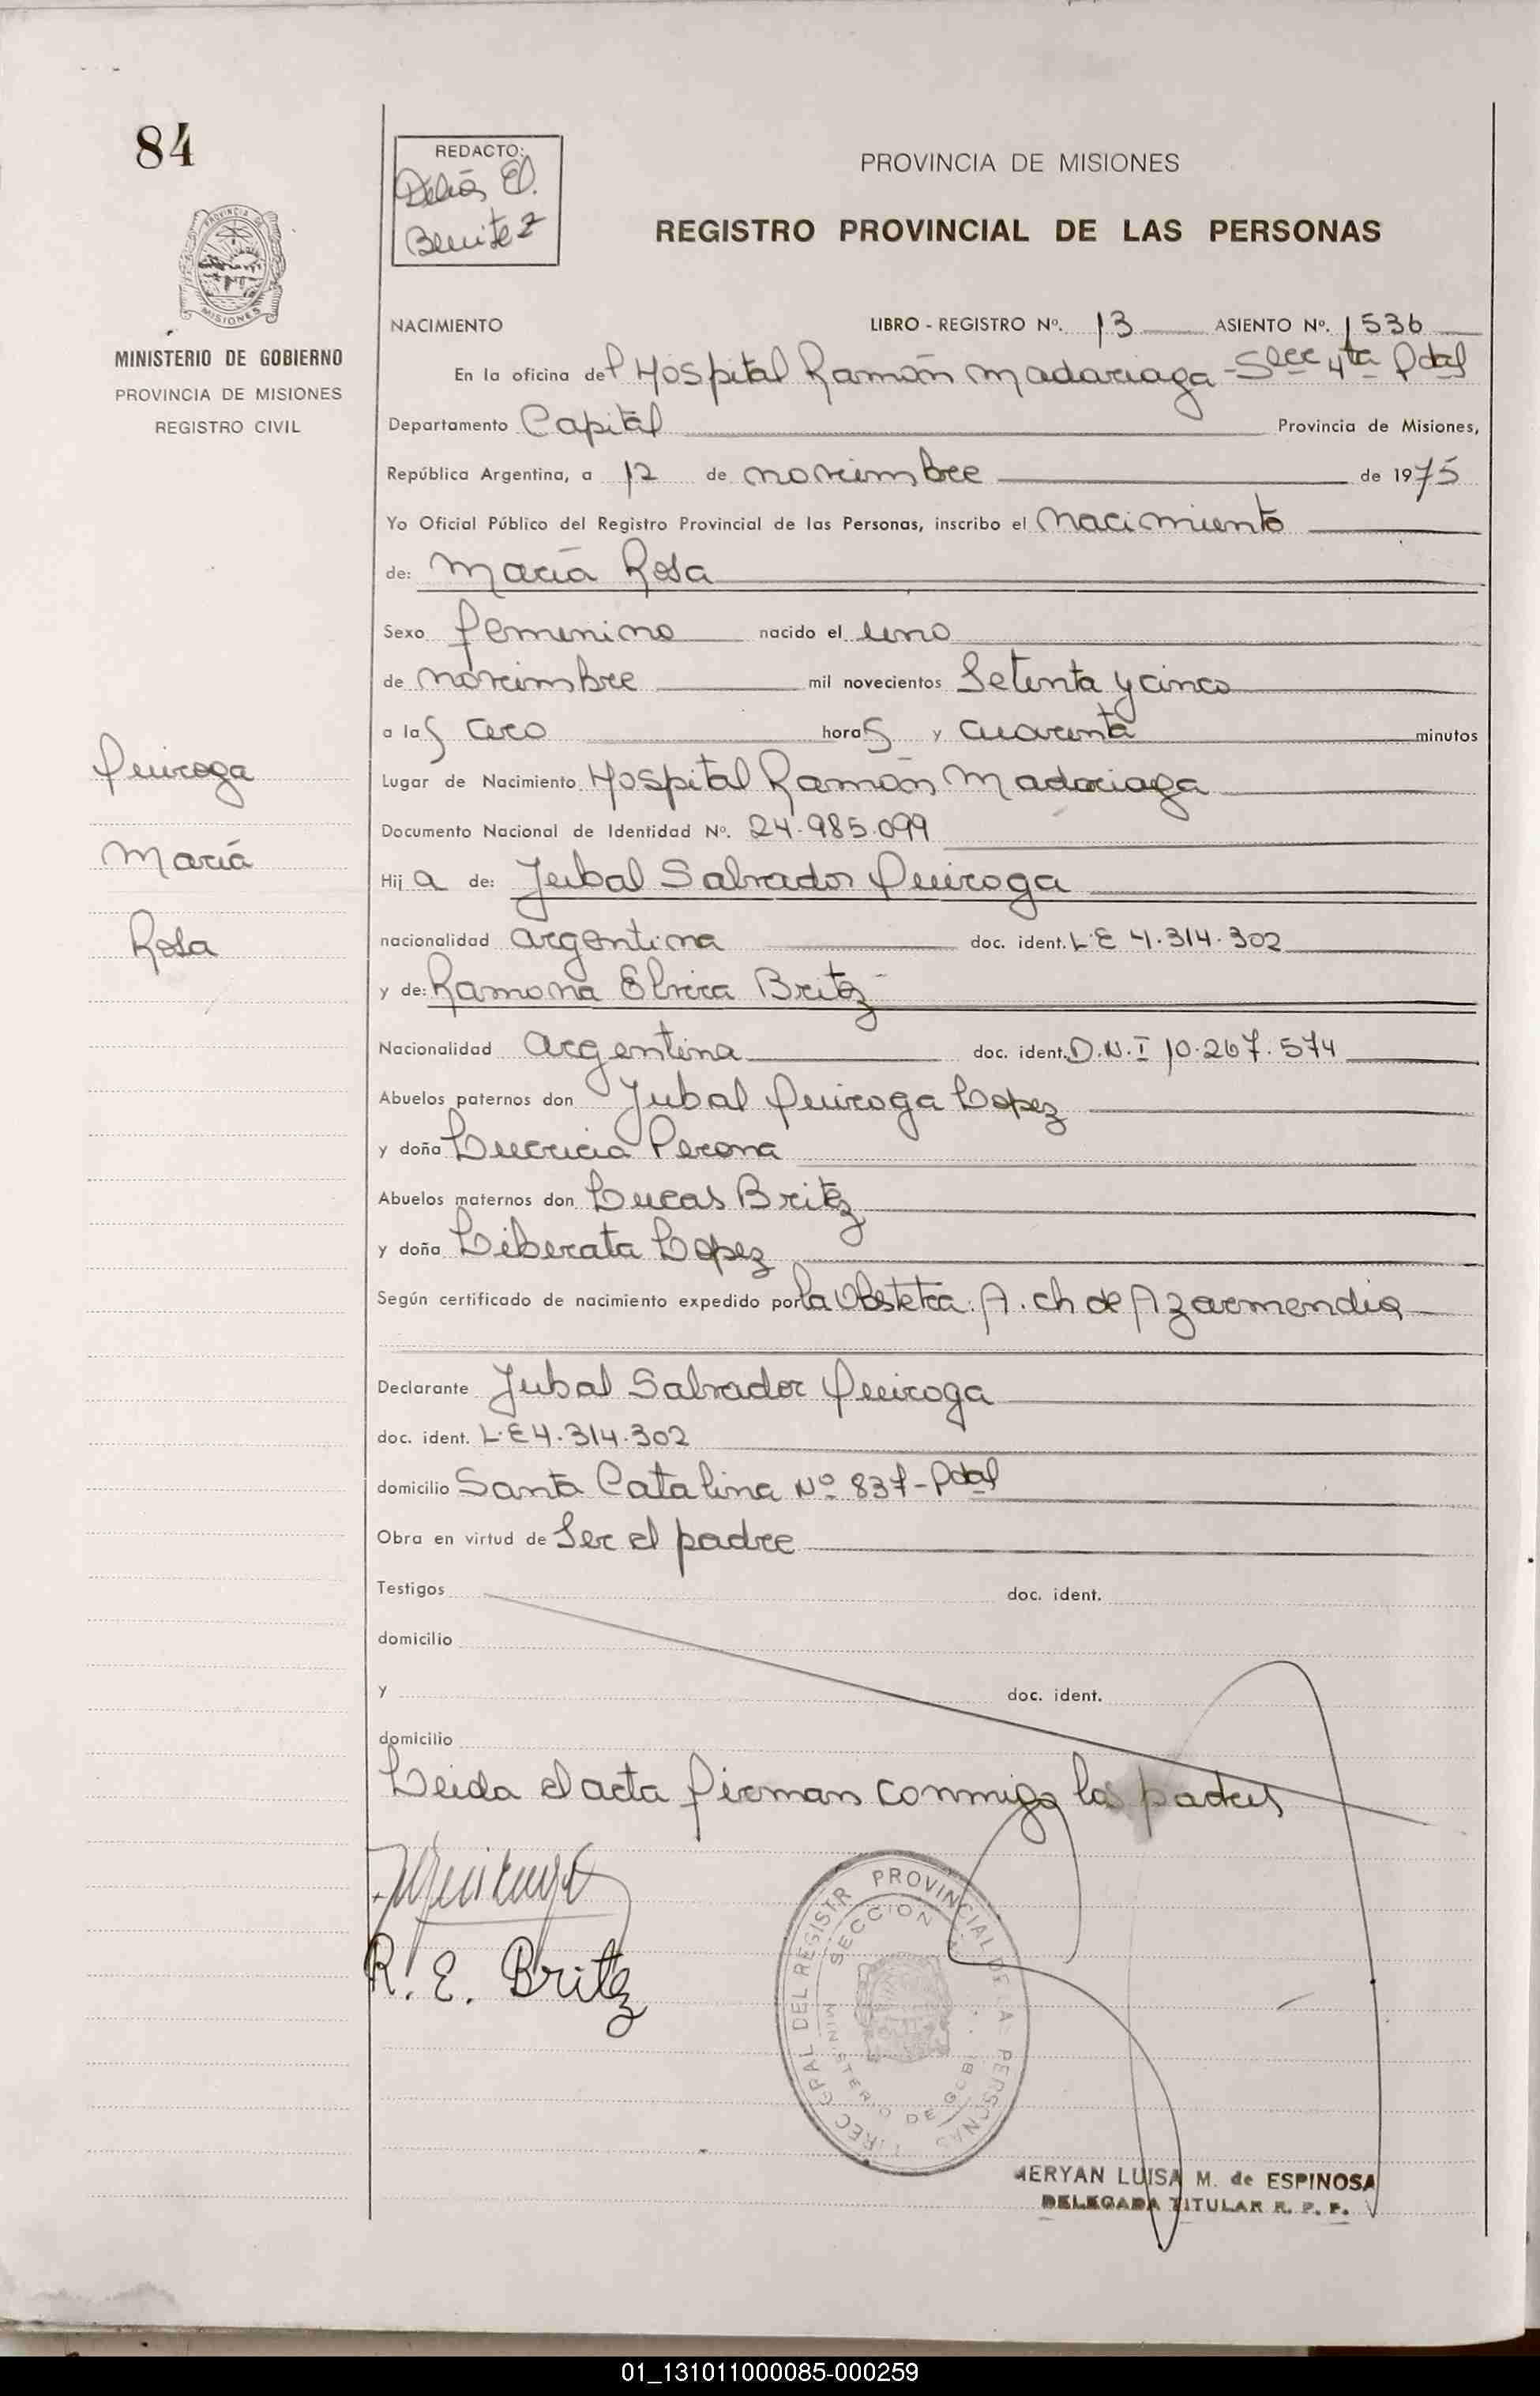 84
REDACTO:
Delia E.
Benitez
PROVINCIA DE MISIONES
REGISTRO PROVINCIAL DE LAS PERSONAS
PROVINCIA DE
MISIONES
MINISTERIO DE GOBIERNO
PROVINCIA DE MISIONES
REGISTRO CIVIL
NACIMIENTO LIBRO - REGISTRO Nº. 13 ASIENTO Nº. 1536
En la oficina del Hospital Ramón Madariaga - Secc 4ta Pdal
Departamento Capital Provincia de Misiones,
República Argentina, a 12 de noviembre de 1975
Yo Oficial Público del Registro Provincial de las Personas, inscribo el nacimiento
de: María Rosa
Sexo femenino nacido el uno
de noviembre mil novecientos Setenta y cinco
a las cero horas y cuarenta minutos
Quiroga
María
Rosa
Lugar de Nacimiento Hospital Ramón Madariaga
Documento Nacional de Identidad Nº. 24.985.099
Hija de: Jubal Salvador Quiroga
nacionalidad argentina doc. ident. L.E 4.314.302
y de: Ramona Elvira Britez
Nacionalidad argentina doc. ident. D.N.I 10.267.574
Abuelos paternos don Jubal Quiroga Lopez
y doña Lucricia Perona
Abuelos maternos don Lucas Britez
y doña Liberata Lopez
Según certificado de nacimiento expedido por la Obstetra: A. ch de Azarmendia
Declarante Jubal Salvador Quiroga
doc. ident. L.E 4.314.302
domicilio Santa Catalina Nº 837 - Pdal
Obra en virtud de Ser el padre
Testigos doc. ident.
domicilio
y doc. ident.
domicilio
Leida el acta firman conmigo los padres
R. E. Britez
DIREC GRAL DEL REGISTR PROVINCIAL DE LA PERSONAS
SECCION
MINISTERIO DE GOBI
MERYAN LUISA M. de ESPINOSA
DELEGADA TITULAR R. P. P.
01_131011000085-000259